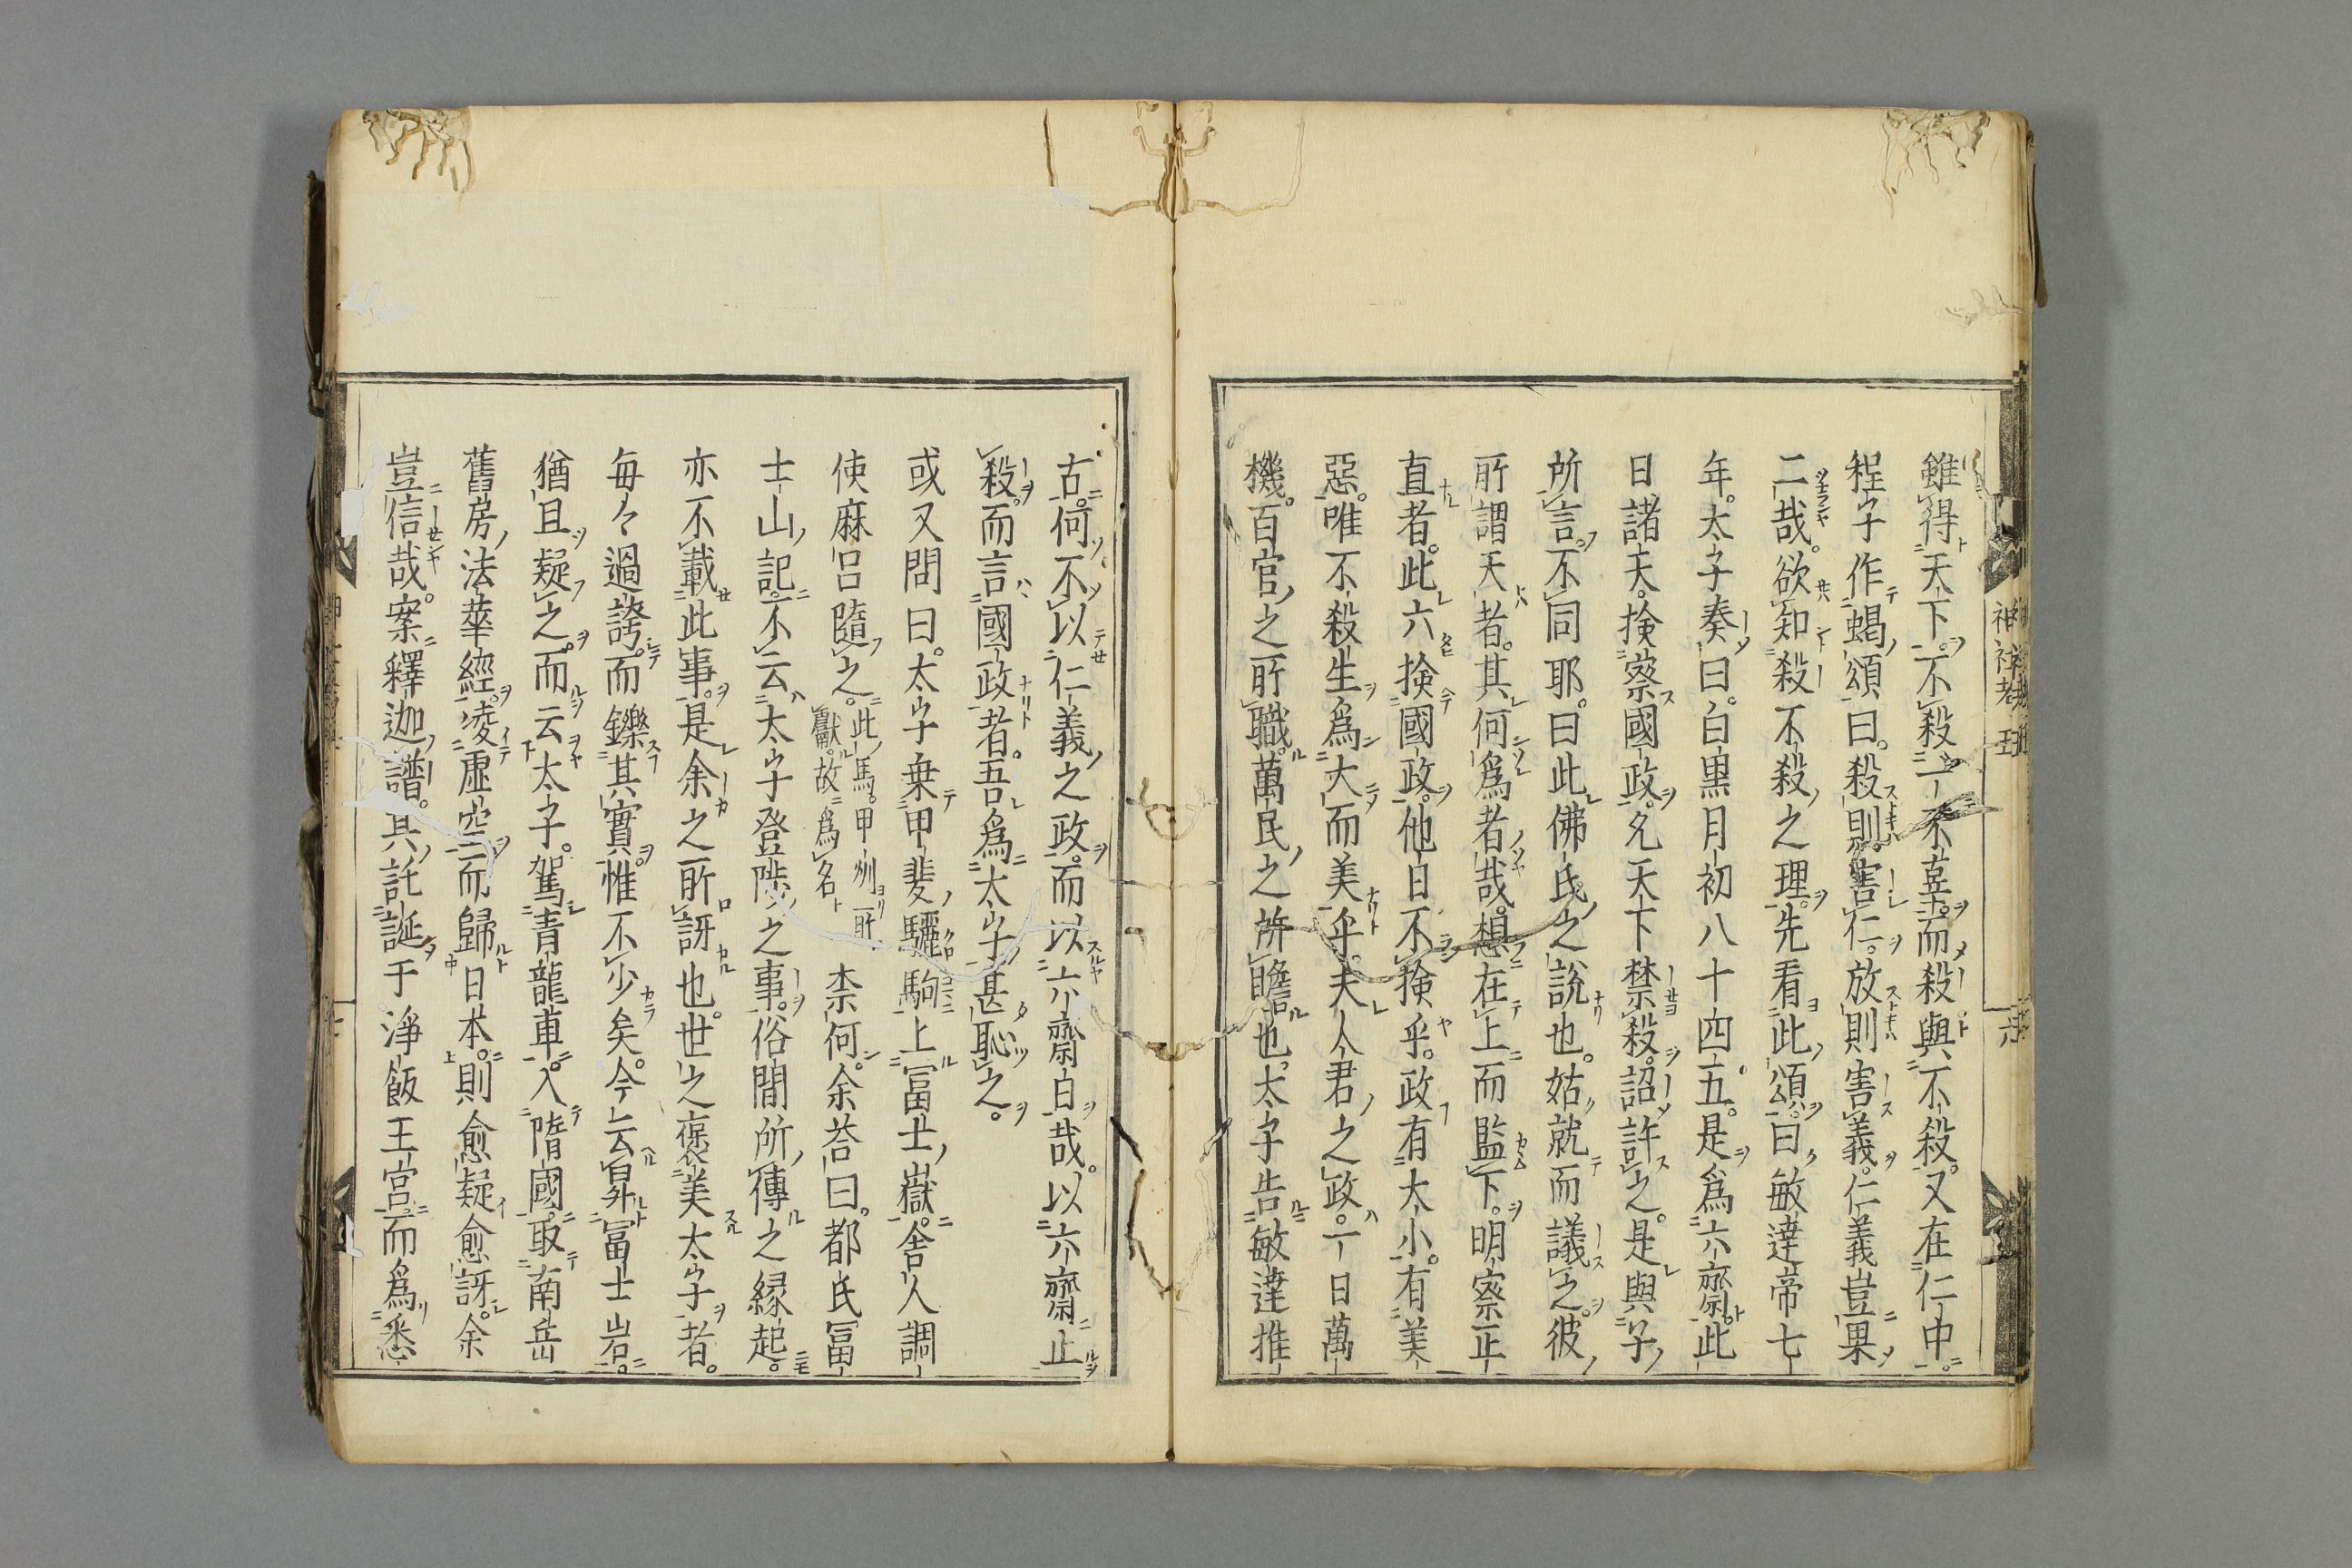 雖得天下。不殺一不辜。而殺與不殺。又在仁中。
程子作蝎頌曰。殺則害仁。放則害義。仁義豈果
二哉。欲知殺不殺之理。先看此頌。曰敏達帝七
年。太子奏曰。白黒月初八十四五。是爲六齋。此
日諸天。捡察國政。凢天下禁殺。詔許之。是與孚
所言。不同耶。曰此佛氏之說也。姑就而議之。彼
所謂天者。其何爲者哉。想在上而監下。明察正
直者。此六捡國政。他日不捡乎。政有大小。有美
惡。唯不殺生爲大而美乎。夫人君之政。一日萬
機。百官之所職。萬民之所瞻也。太子告敏達推
古。何不以仁義之政。而以六齋白哉。以六齋止
殺。而言國政者。吾爲太子甚恥之。
或又問曰。太子乗甲斐驪駒上冨士嶽。舎人調
使麻呂隨之。此馬。甲州所獻。故爲名 柰何。余荅曰。都氏冨
士山記。不云太子登陟之事。俗間所傳之縁起。
亦不載此事。是余之所訝也。世之褒美太子者。
毎々過誇。而鑠其實。惟不少矣。今云昇冨士岩。
猶且疑之。而云太子。駕青龍車。入隋國。取南岳
舊房法華經。凌虛空而歸日本。則愈疑愈訝。余
豈信哉。案釋迦譜。其託誕于淨飯王宮。而爲悉
神社考 五
六